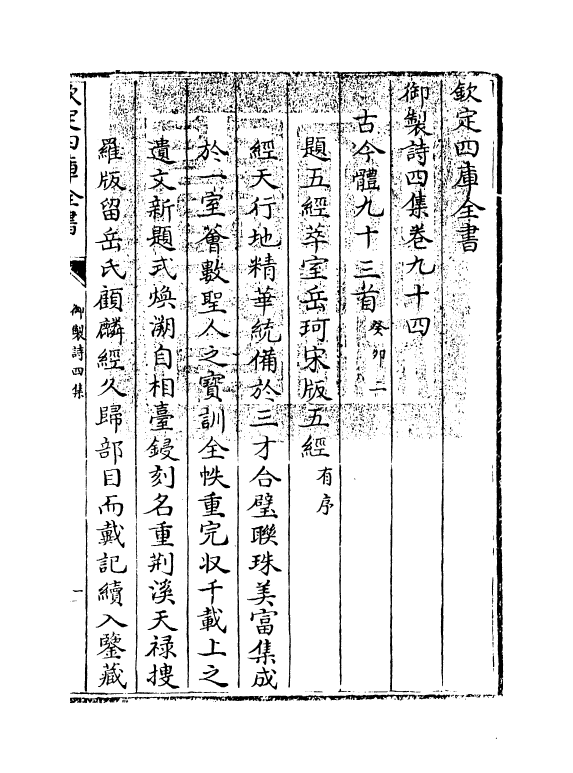 欽定四庫全書
御製詩四集卷九十四
古今體九十三首癸卯二
題五經萃室岳珂宋版五經有序
經天行地精華統備於三才合璧聯珠美富集成
於一室薈數聖人之寶訓全帙重完收千載上之
遺文新題式煥溯自相臺鋟刻名重荆溪天禄搜
羅版留岳氏顧麟經久歸部目而戴記續入鑒藏
欽定四庫全書
御製詩四集
一